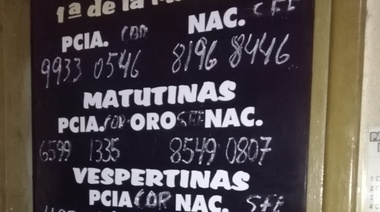 1ª de la M
PCIA. CBA NAC. SFE
9933 0546 8196 8446
MATUTINAS
PCIA. COR ORO SFE NAC.
6599 1335 8549 0807
VESPERTINAS
PCIA COR NAC. SFE